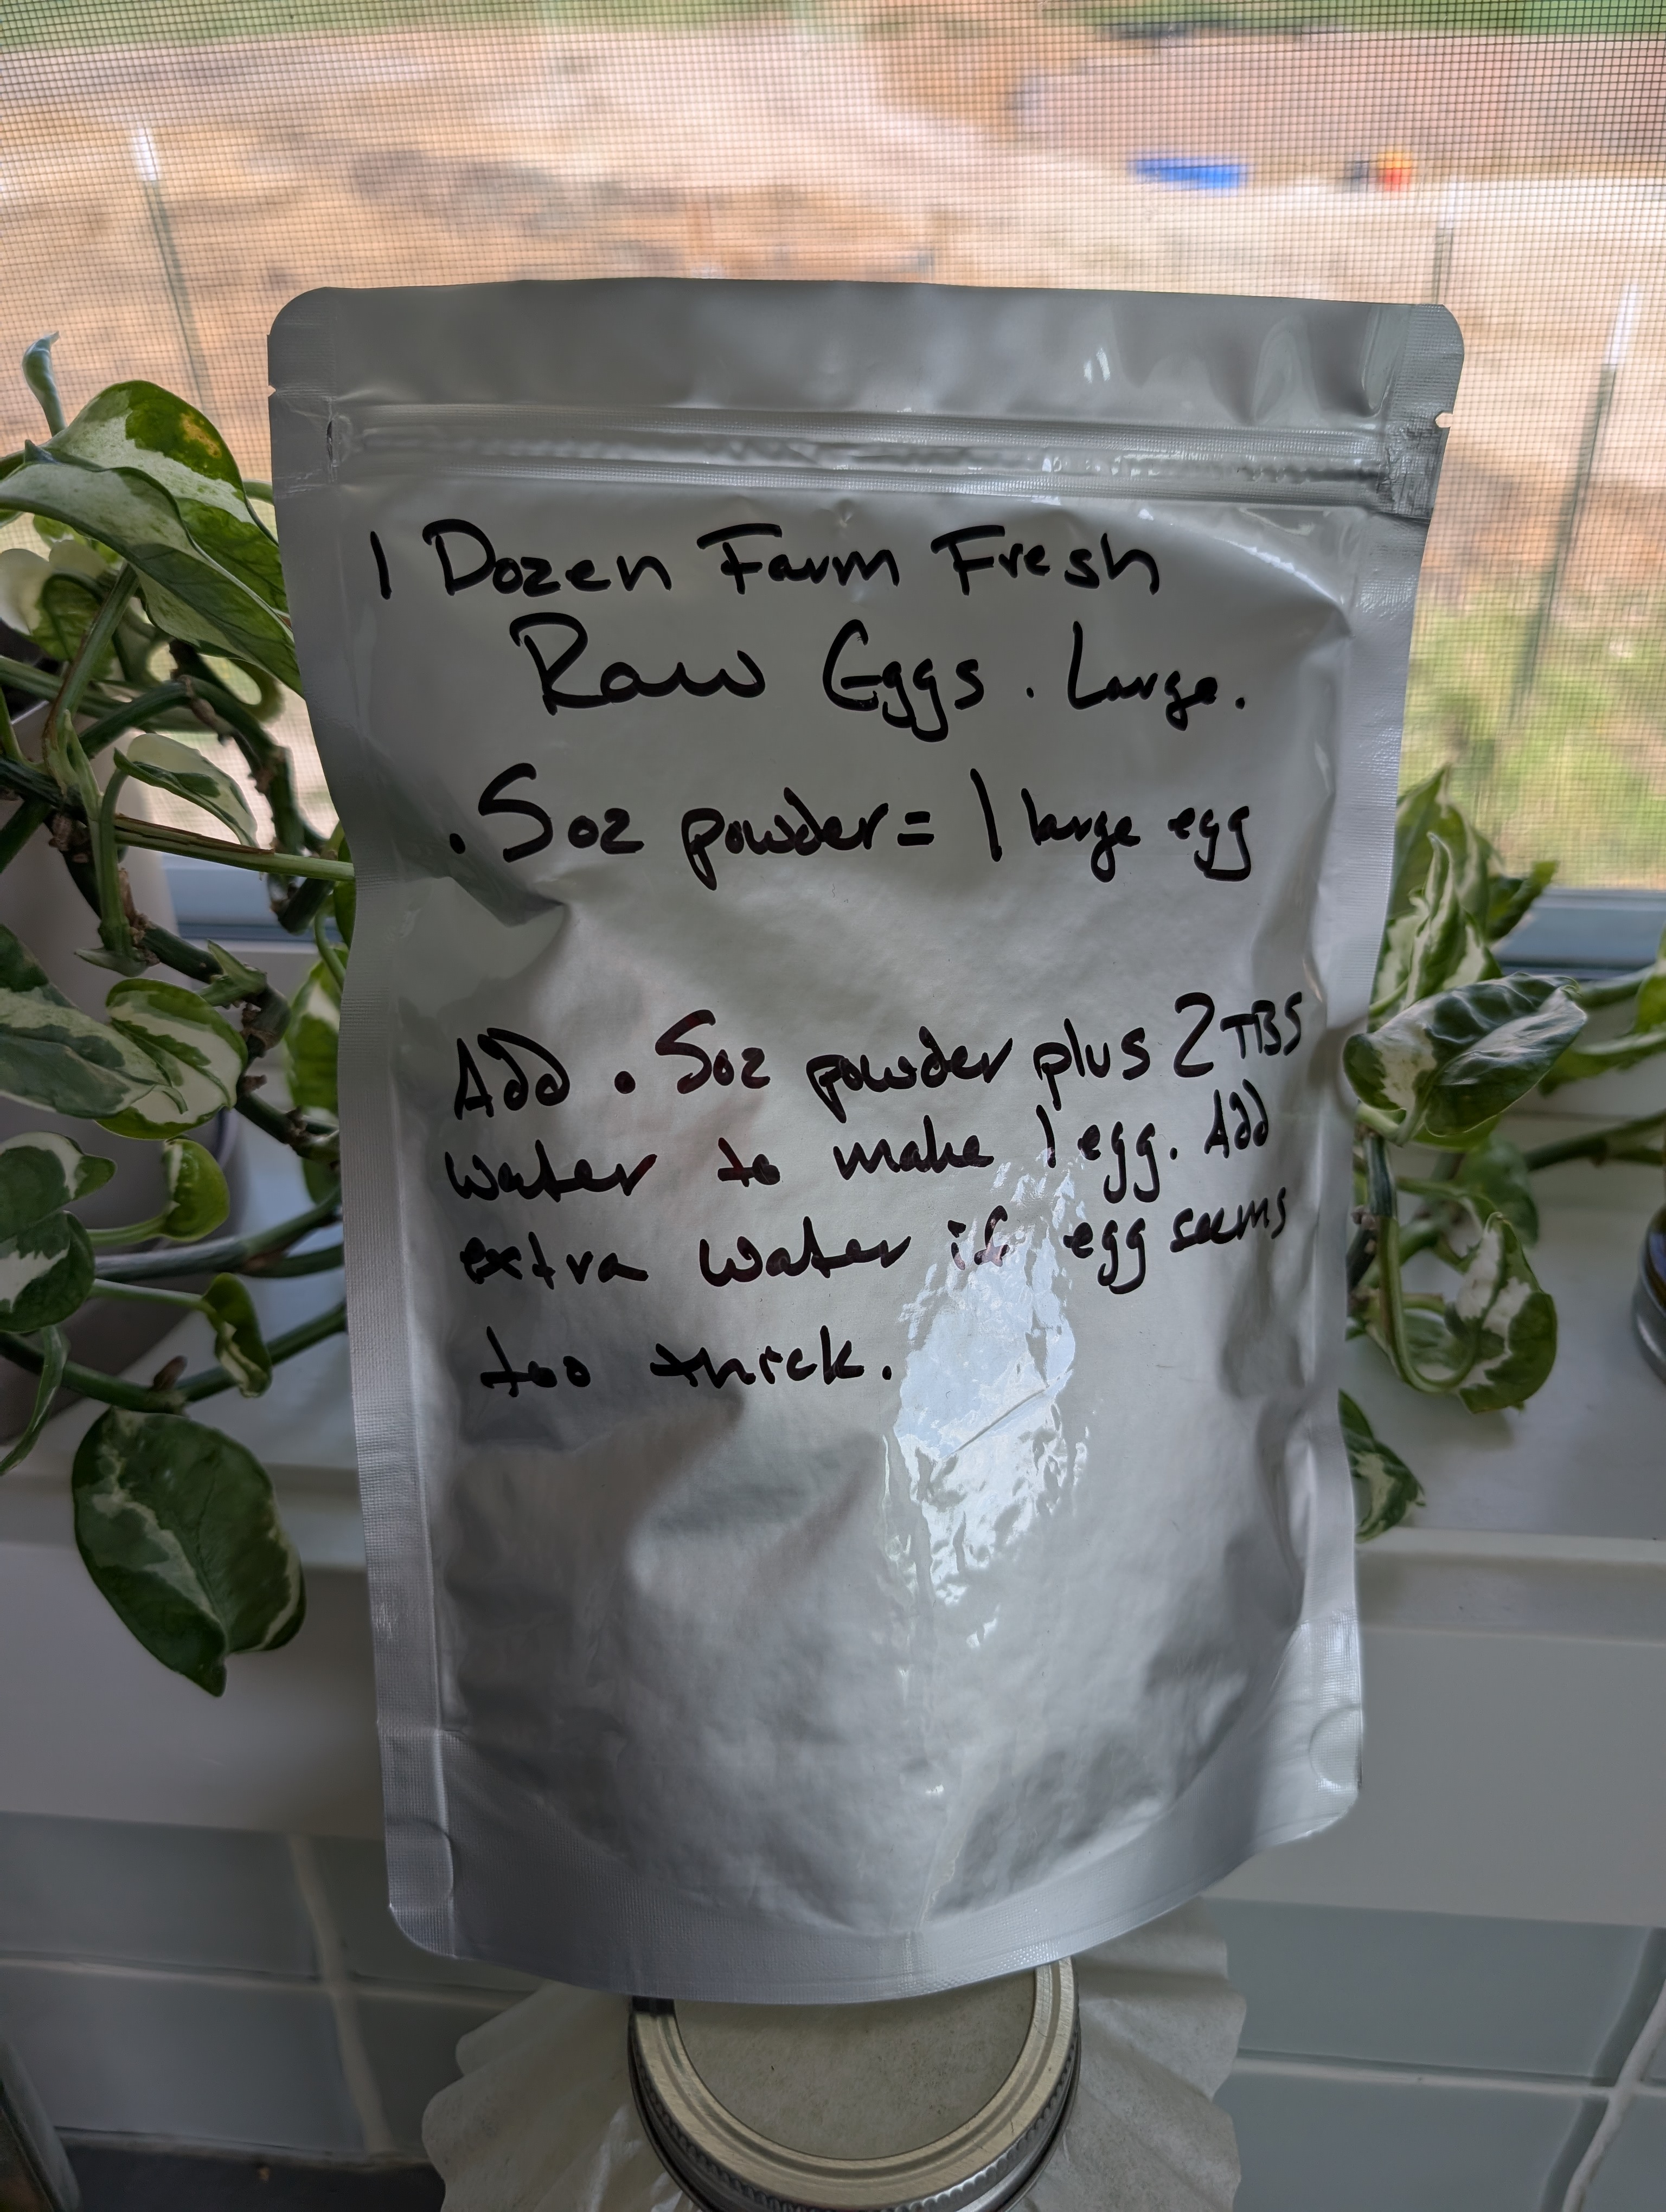 1 Dozen Farm Fresh
Raw Eggs. Large.
.5oz powder = 1 large egg
Add .5oz powder plus 2 TBS
water to make 1 egg. Add
extra water if egg seems
too thick.